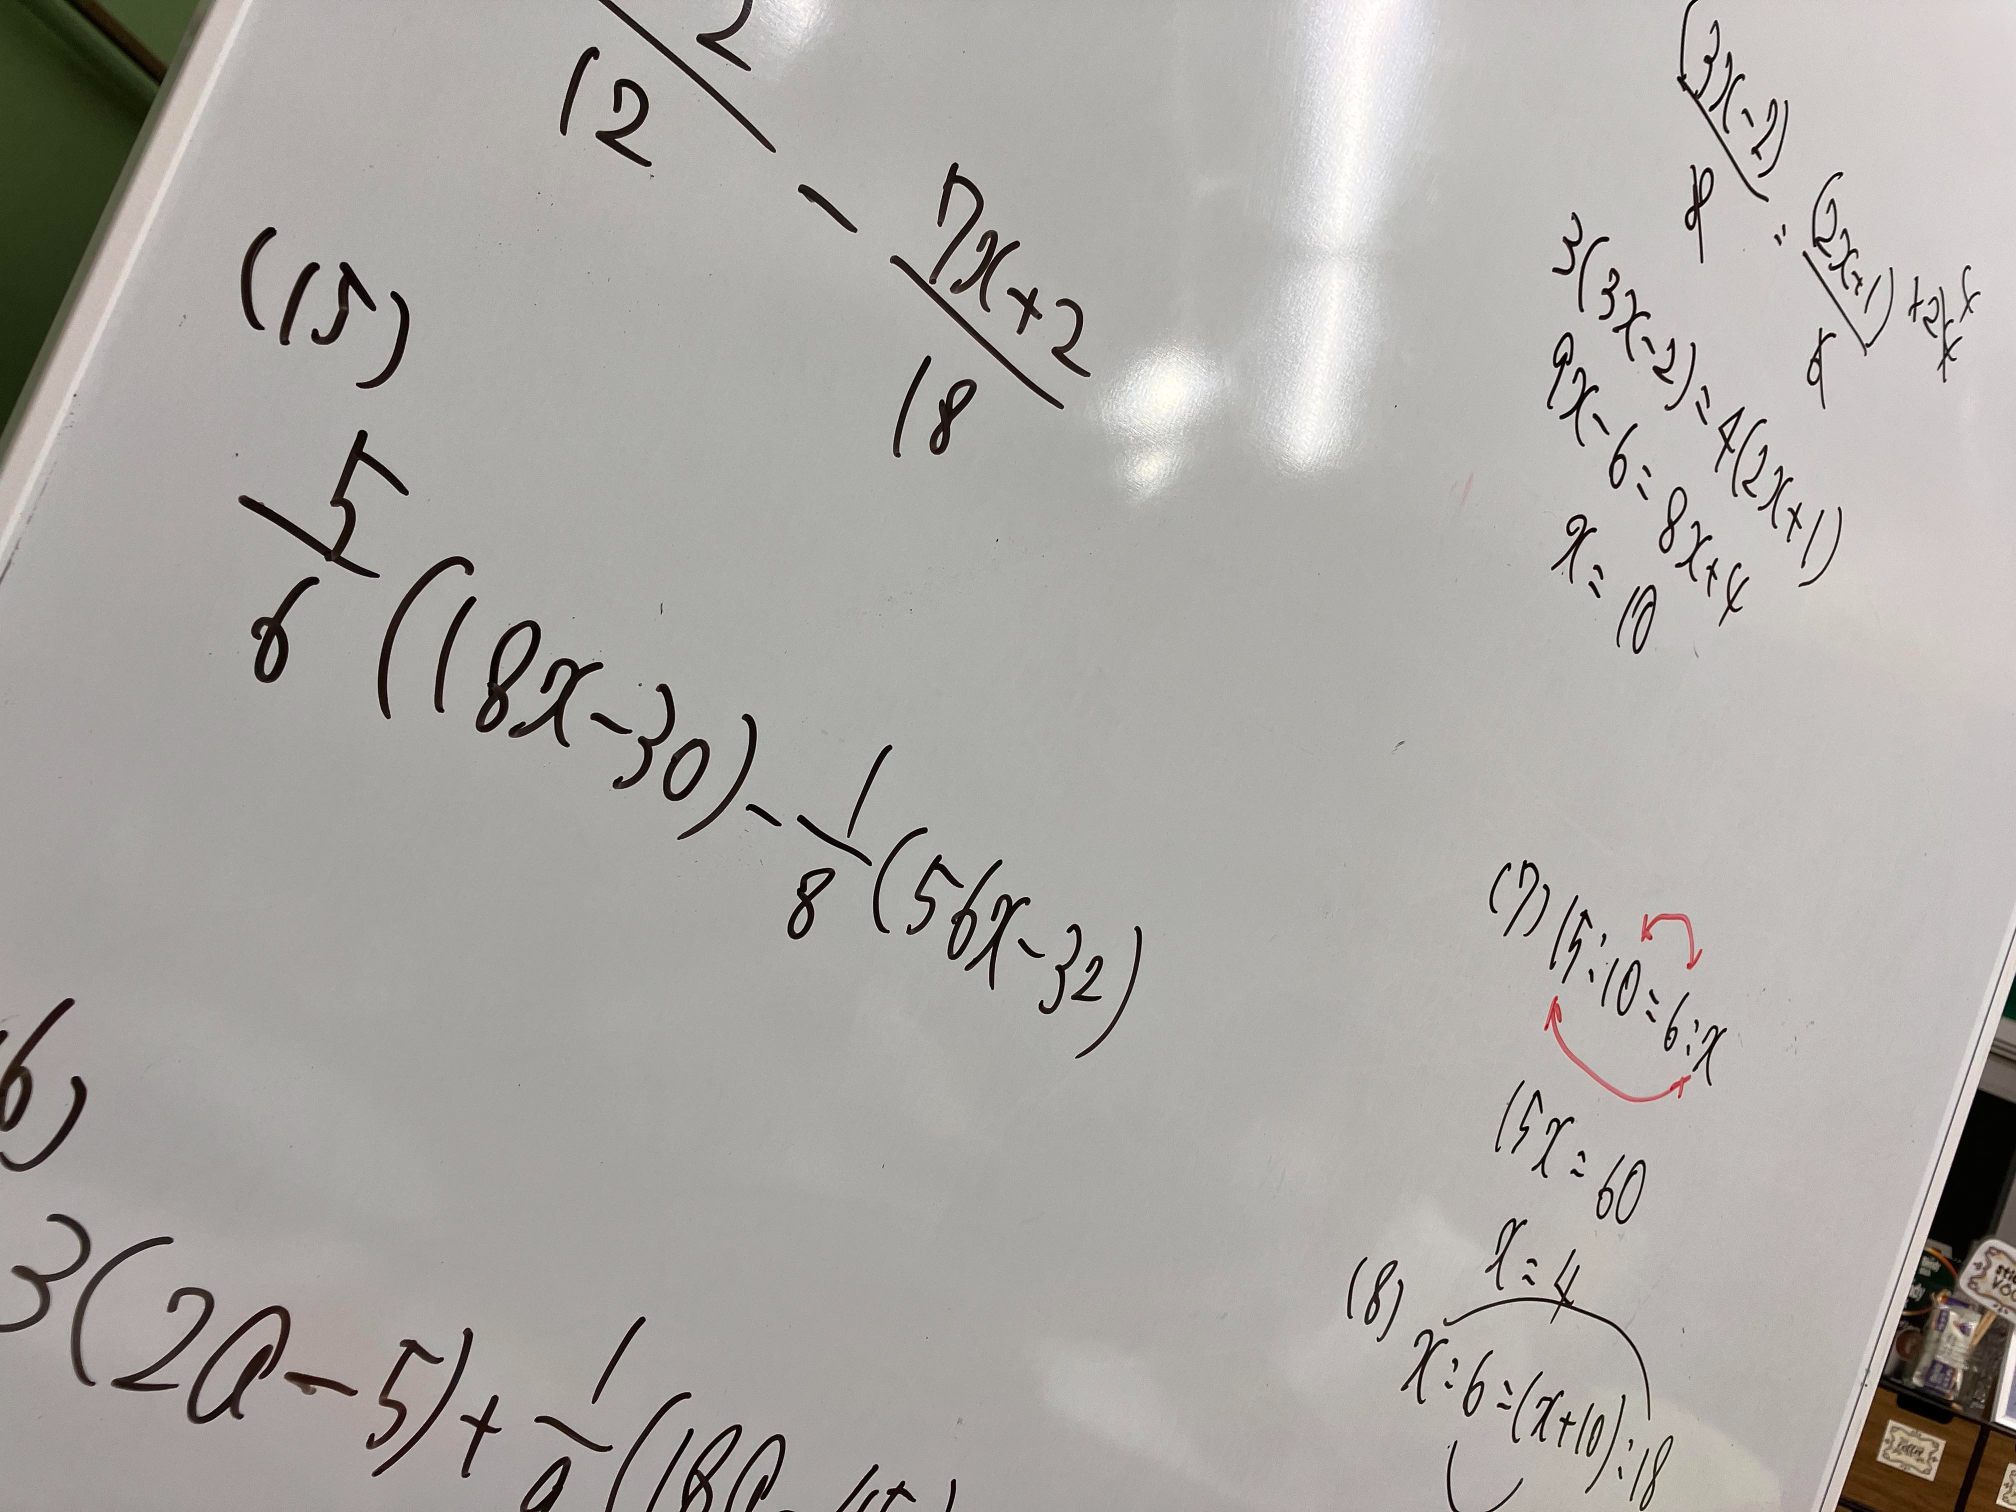 2
12
- 7x+2
18
(15)
5/6 (18x-30) - 1/8 (56x-32)
6)
3(2a-5)+
(3x-2)
= (2x+1)
3(3x-2)=4(2x+1)
9x-6=8x+4
x=10
(7) 15:10=6:x
15x=60
x=4
(8) x:6=(x+10):18